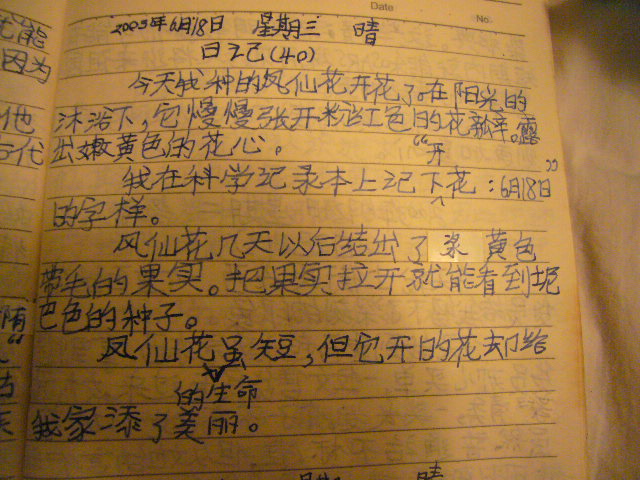 Date
No.
2003年6月18日 星期三 晴
日记(40)
今天我种的凤仙花开花了。在阳光的
沐浴下,它慢慢张开粉红色的花瓣。露
出嫩黄色的花心。
我在科学记录本上记下“开花:6月18日”
的字样。
凤仙花几天以后结出了 黄色
带毛的果实。把果实拉开就能看到
色的种子。
凤仙花的生命虽短,但它开的花却给
我家添了美丽。
尤能
因为
他
代
晴